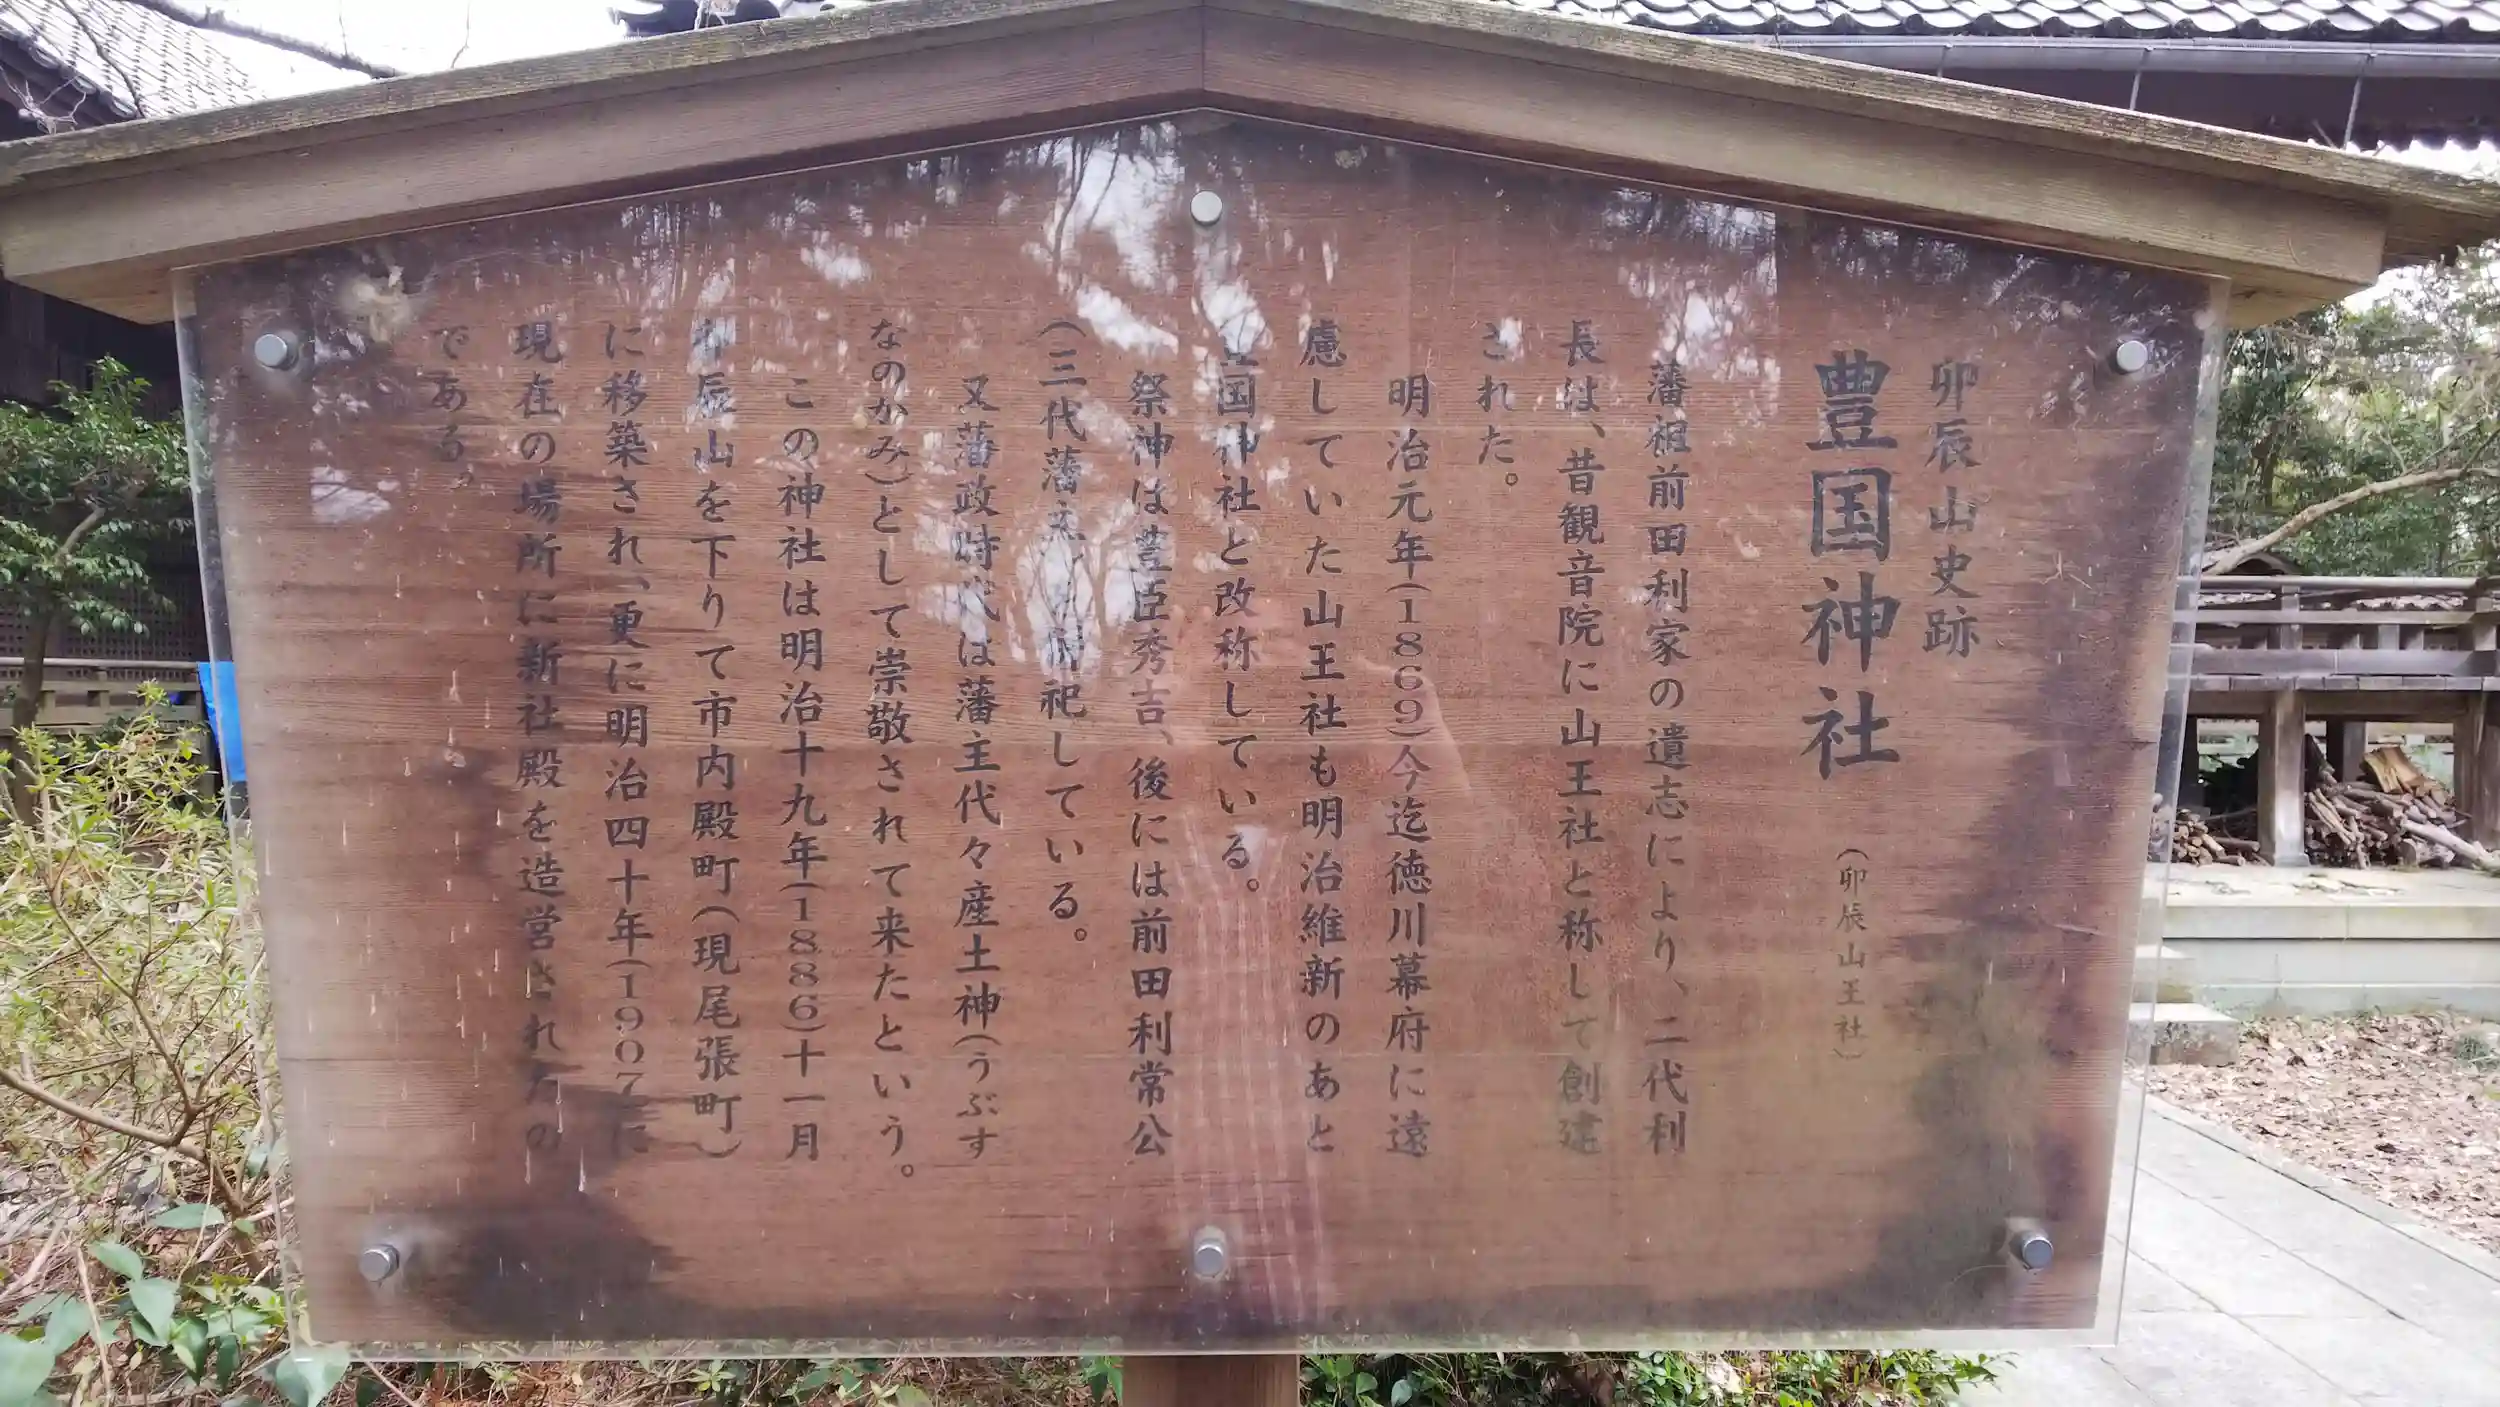 卯辰山史跡
豊国神社 (卯辰山王社)
藩祖前田利家の遺志により、二代利
長は、昔観音院に山王社と称して創建
された。
明治元年(1869)今迄徳川幕府に遠
慮していた山王社も明治維新のあと
豊国神社と改称している。
祭神は豊臣秀吉、後には前田利常公
(三代藩主)を附祀している。
又藩政時代は藩主代々産土神(うぶす
なのかみ)として崇敬されて来たという。
この神社は明治十九年(1886)十一月
卯辰山を下りて市内殿町(現尾張町)
に移築され、更に明治四十年(1907)に
現在の場所に新社殿を造営されたの
である。